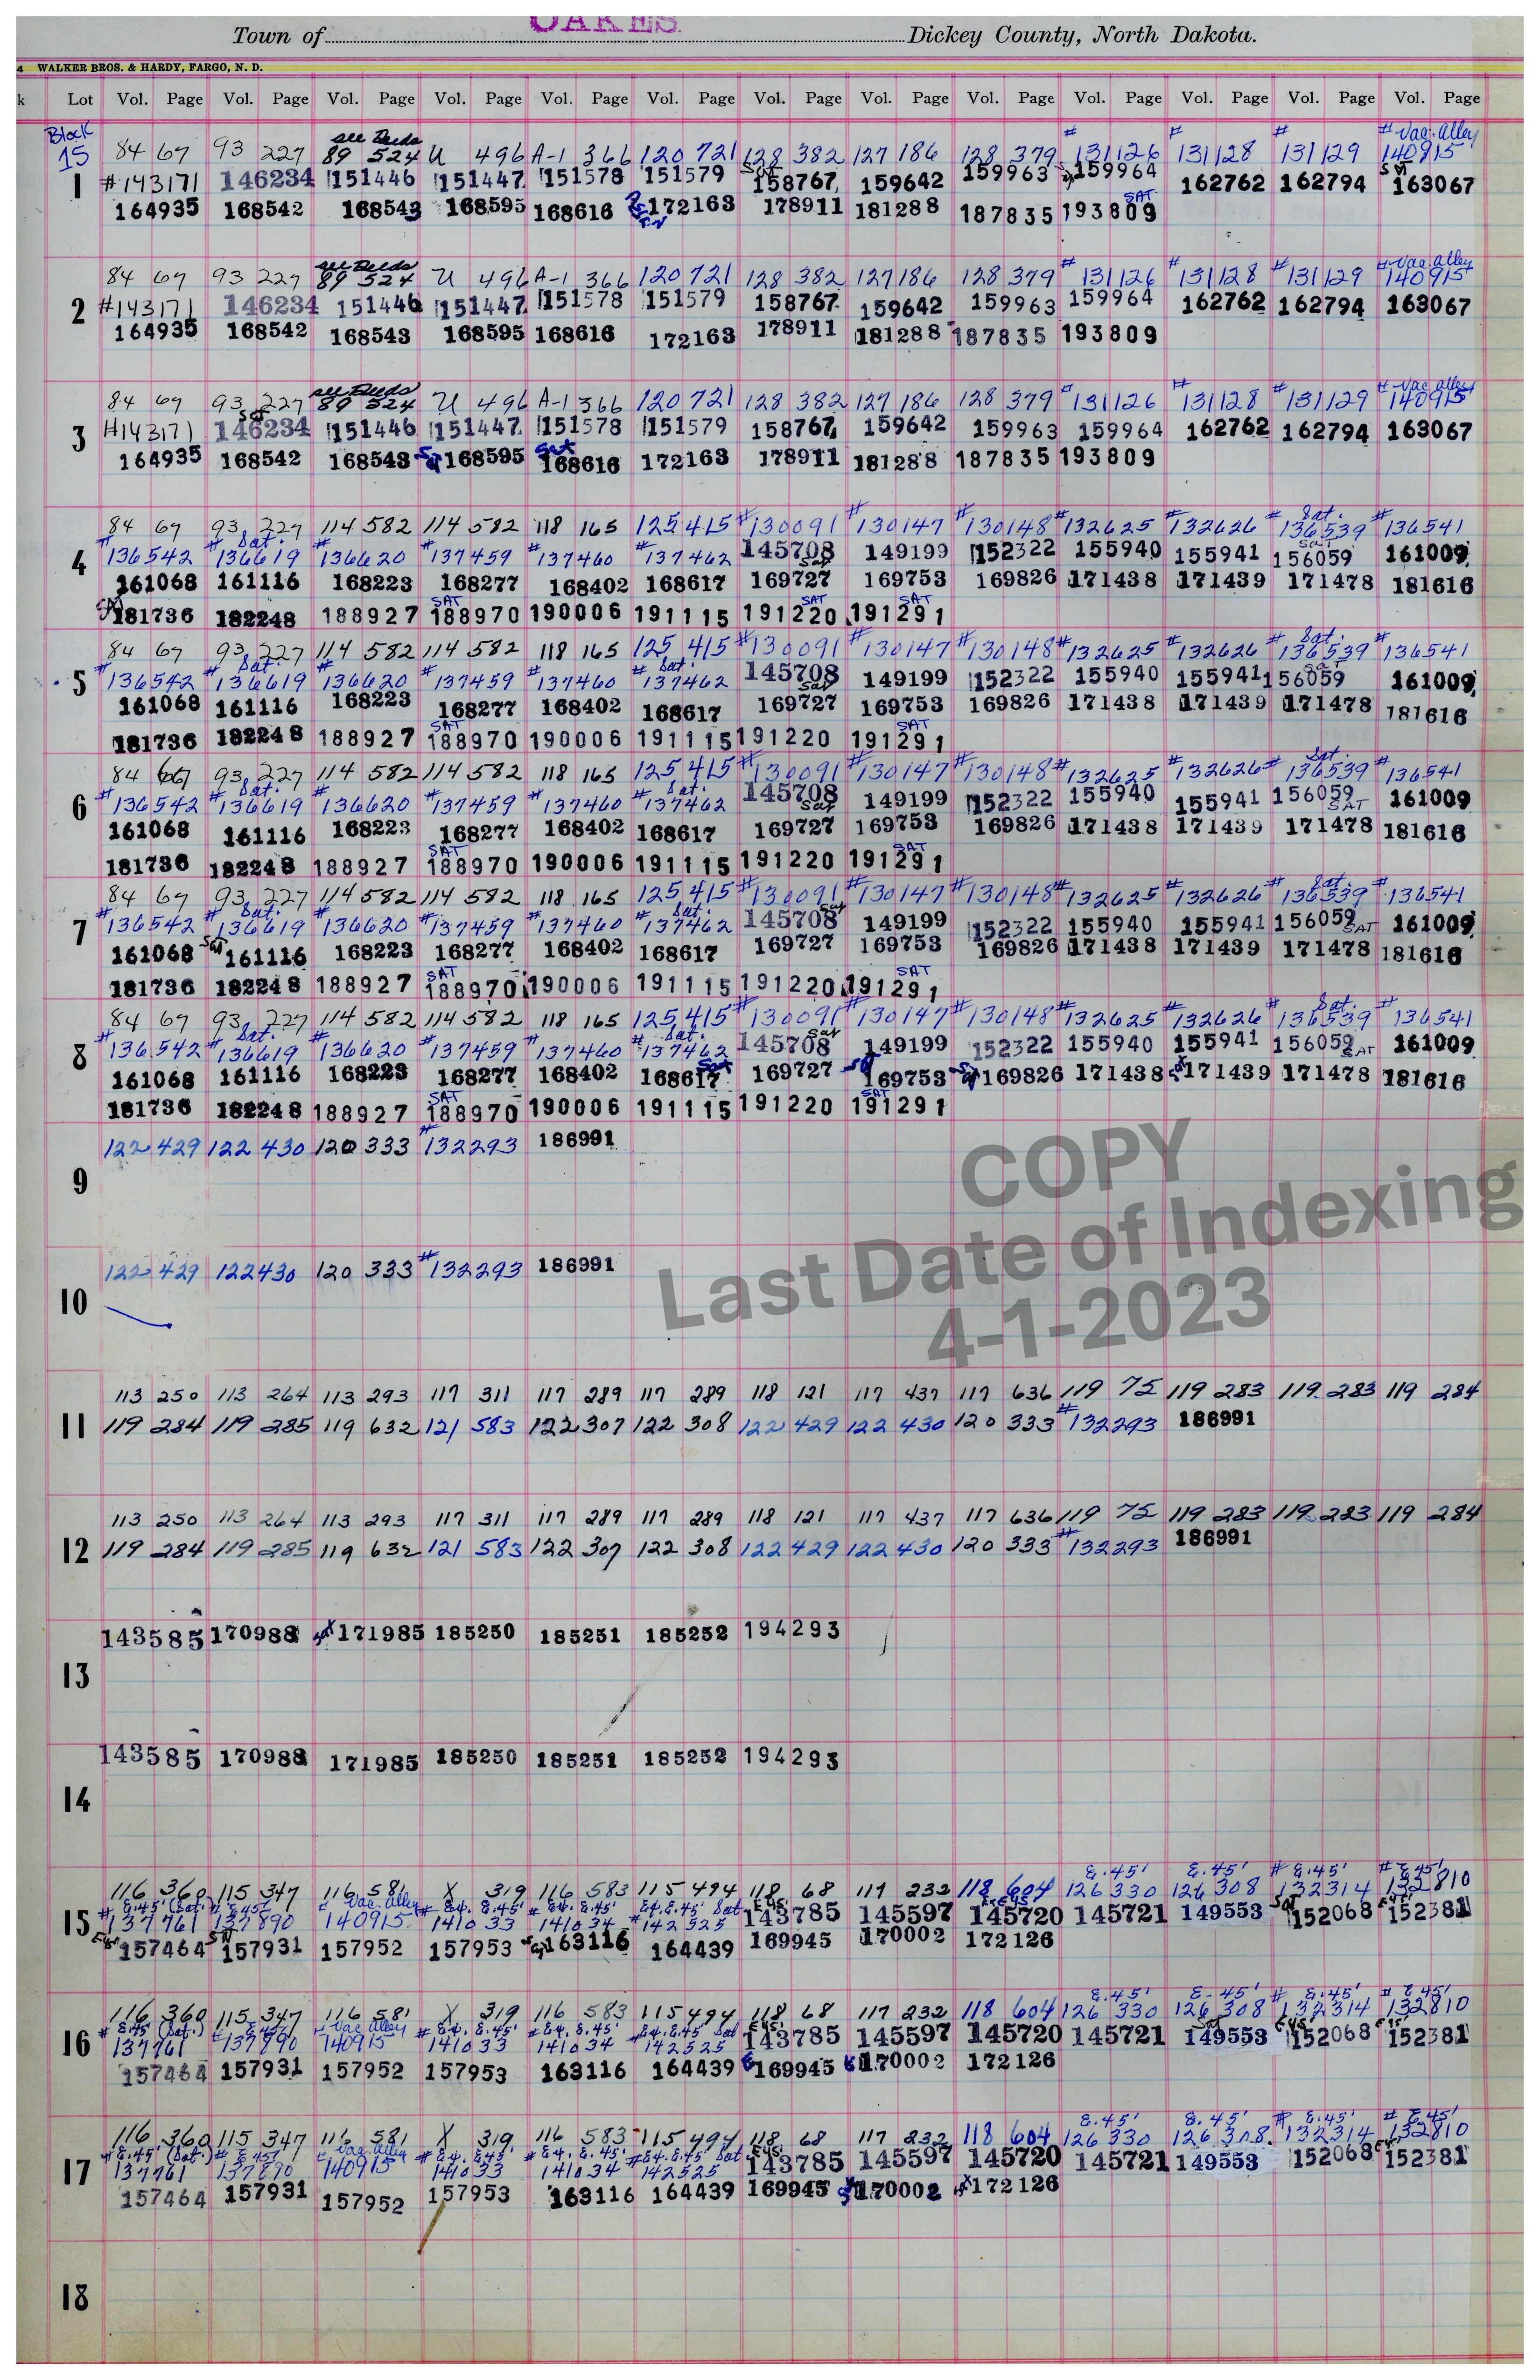 OAKES
Town of Dickey County, North Dakota.
4 WALKER BROS. & HARDY, FARGO, N. D.
k Lot Vol. Page Vol. Page Vol. Page Vol. Page Vol. Page Vol. Page Vol. Page Vol. Page Vol. Page Vol. Page Vol. Page Vol. Page Vol. Page
Block see Deeds # # # # Vac. Alley
15 84 67 93 227 89 524 U 496 A-1 366 120 721 128 382 127 186 128 379 131126 131128 131129 140915
1 #143171 146234 151446 151447 151578 151579 158767 159642 159963 159964 162762 162794 163067
164935 168542 168543 168595 168616 172163 178911 181288 187835 193809 SAT
see Deeds # Vac. Alley
84 67 93 227 89 524 U 496 A-1 366 120 721 128 382 127 186 128 379 #131126 #131128 #131129 140915
2 #143171 146234 151446 151447 151578 151579 158767 159642 159963 159964 162762 162794 163067
164935 168542 168543 168595 168616 172163 178911 181288 187835 193809
see Deeds # Vac. alley
84 67 93 227 89 524 U 496 A-1 366 120 721 128 382 127 186 128 379 #131126 #131128 #131129 140915
3 #143171 146234 151446 151447 151578 151579 158767 159642 159963 159964 162762 162794 163067
164935 168542 168543 168595 168616 172163 178911 181288 187835 193809
84 67 93 227 114 582 114 582 118 165 125 415 #130091 #130147 #130148 #132625 #132626 #Sat. 136539 #136541
4 #136542 #Sat. 136619 #136620 #137459 #137460 #137462 145708 149199 152322 155940 155941 156059 161009
161068 161116 168223 168277 168402 168617 169727 169753 169826 171438 171439 171478 181616
181736 182248 188927 SAT 188970 190006 191115 SAT 191220 SAT 191291
84 67 93 227 114 582 114 582 118 165 125 415 #130091 #130147 #130148 #132625 #132626 #Sat. 136539 #136541
5 #136542 #Sat. 136619 #136620 #137459 #137460 #Sat. 137462 145708 149199 152322 155940 155941 156059 161009
161068 161116 168223 168277 168402 168617 169727 169753 169826 171438 171439 171478 181616
181736 182248 188927 SAT 188970 190006 191115 191220 SAT 191291
84 67 93 227 114 582 114 582 118 165 125 415 #130091 #130147 #130148 #132625 #132626 #Sat. 136539 #136541
6 #136542 #Sat. 136619 #136620 #137459 #137460 #Sat. 137462 145708 149199 152322 155940 155941 156059 SAT 161009
161068 161116 168223 168277 168402 168617 169727 169753 169826 171438 171439 171478 181616
181736 182248 188927 SAT 188970 190006 191115 191220 SAT 191291
84 67 93 227 114 582 114 582 118 165 125 415 #130091 #130147 #130148 #132625 #132626 #Sat. 136539 #136541
7 #136542 #Sat. 136619 #136620 #137459 #137460 #Sat. 137462 145708 149199 152322 155940 155941 156059 SAT 161009
161068 161116 168223 168277 168402 168617 169727 169753 169826 171438 171439 171478 181616
181736 182248 188927 SAT 188970 190006 191115 191220 SAT 191291
84 67 93 227 114 582 114 582 118 165 125 415 #130091 #130147 #130148 #132625 #132626 #Sat. 136539 #136541
8 #136542 #Sat. 136619 #136620 #137459 #137460 #Sat. 137462 145708 149199 152322 155940 155941 156059 SAT 161009
161068 161116 168223 168277 168402 168617 169727 169753 169826 171438 171439 171478 181616
181736 182248 188927 SAT 188970 190006 191115 191220 SAT 191291
122 429 122 430 120 333 #132293 186991
9
122 429 122 430 120 333 #132293 186991
10
113 250 113 264 113 293 117 311 117 289 117 289 118 121 117 437 117 636 119 75 119 283 119 283 119 284
11 119 284 119 285 119 632 121 583 122 307 122 308 122 429 122 430 120 333 #132293 186991
113 250 113 264 113 293 117 311 117 289 117 289 118 121 117 437 117 636 119 75 119 283 119 283 119 284
12 119 284 119 285 119 632 121 583 122 307 122 308 122 429 122 430 120 333 #132293 186991
143585 170988 171985 185250 185251 185252 194293
13
143585 170988 171985 185250 185251 185252 194293
14
E.45' E.45' # E.45' # E.45'
116 360 115 347 116 581 X 319 116 583 115 494 118 68 117 232 118 604 126 330 126 308 132314 132810
# E.45' (Sat.) # E.45' # Vac. Alley # E4. E.45' # E4. E.45' # E4. E.45' Sat
15 137761 137890 140915 141033 141034 142525 143785 145597 145720 145721 149553 152068 152381
157464 157931 157952 157953 163116 164439 169945 170002 172126
E.45' E-45' # E.45' # E.45'
116 360 115 347 116 581 X 319 116 583 115 494 118 68 117 232 118 604 126 330 126 308 132314 132810
# E.45' (Sat.) # E.45' # Vac. Alley # E4. E.45' # E4. E.45' # E4. E.45' Sat
16 137761 137890 140915 141033 141034 142525 143785 145597 145720 145721 149553 152068 152381
157464 157931 157952 157953 163116 164439 169945 170002 172126
E.45' E.45' # E.45' # E.45'
116 360 115 347 116 581 X 319 116 583 115 494 118 68 117 232 118 604 126 330 126 308 132314 132810
# E.45' (Sat.) # E.45' # Vac. Alley # E4. E.45' # E4. E.45' # E4. E.45' Sat
17 137761 137890 140915 141033 141034 142525 143785 145597 145720 145721 149553 152068 152381
157464 157931 157952 157953 163116 164439 169945 170002 172126
18
COPY
Last Date of Indexing
4-1-2023